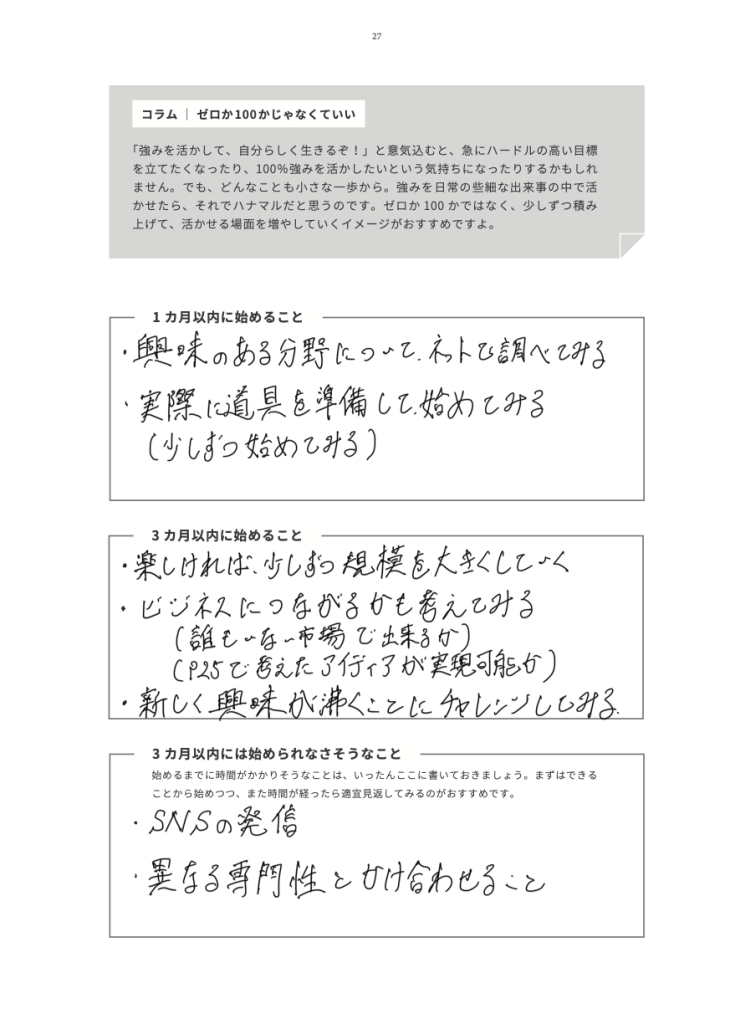 27
コラム｜ゼロか100かじゃなくていい
「強みを活かして、自分らしく生きるぞ！」と意気込むと、急にハードルの高い目標
を立てたくなったり、100%強みを活かしたいという気持ちになったりするかもしれ
ません。でも、どんなことも小さな一歩から。強みを日常の些細な出来事の中で活
かせたら、それでハナマルだと思うのです。ゼロか 100 かではなく、少しずつ積み
上げて、活かせる場面を増やしていくイメージがおすすめですよ。
1 カ月以内に始めること
・興味のある分野について、ネットで調べてみる
・実際に道具を準備して、始めてみる
（少しずつ始めてみる）
3 カ月以内に始めること
・楽しければ、少しずつ規模を大きくしていく
・ビジネスにつながるかも考えてみる
（誰もいない市場で出来るか）
（P25で考えたアイディアが実現可能か）
・新しく興味が沸くことにチャレンジしてみる。
3 カ月以内には始められなさそうなこと
始めるまでに時間がかかりそうなことは、いったんここに書いておきましょう。まずはできる
ことから始めつつ、また時間が経ったら適宜見返してみるのがおすすめです。
・SNSの発信
・異なる専門性とかけ合わせること